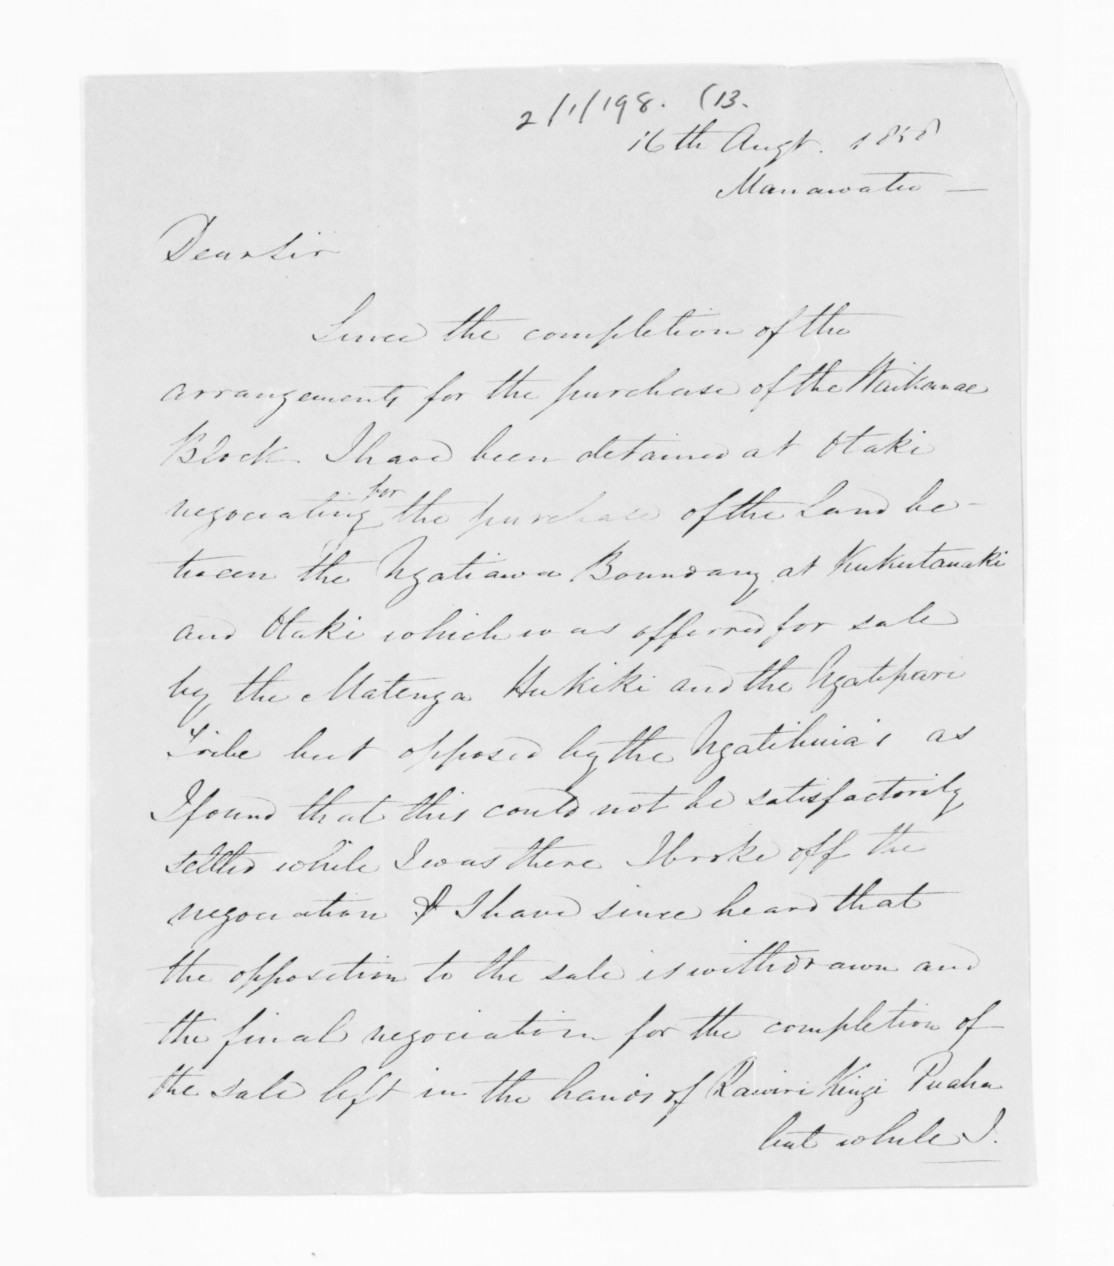 2/1/198. (13.
16th Augt. 1858
Manawatu —
Dear Sir
Since the completion of the
arrangements for the purchase of the Waikanae
Block I have been detained at Otaki
negociating for the purchase of the Land be-
tween the Ngatiawa Boundary at Kukutauaki
and Otaki which was offerred for sale
by the Matenga Hukiki and the Ngatipari
Tribe but opposed by the Ngatihuia's as
I found that this could not be satisfactorily
settled while I was there I broke off the
negociation & I have since heard that
the opposition to the sale is withdrawn and
the final negociation for the completion of
the sale left in the hands of Rawiri Kingi Puaha
but while I.